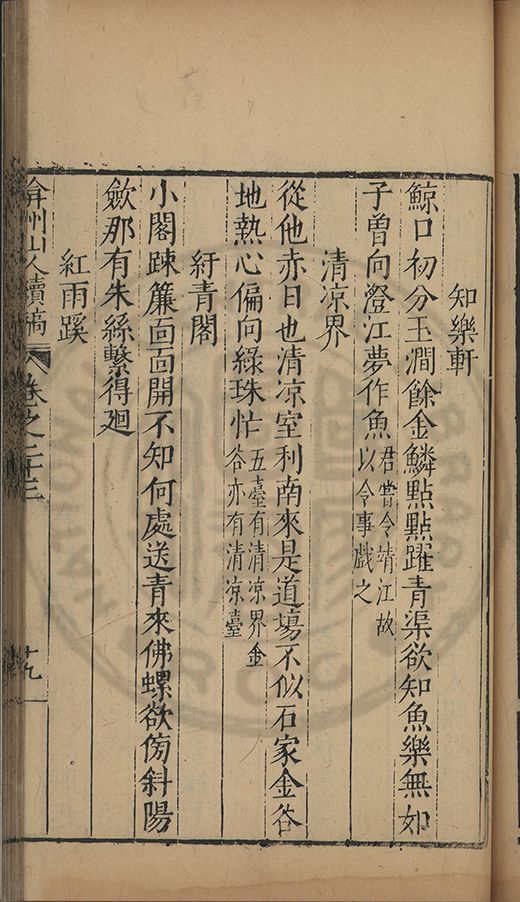 知樂軒
鯨口初分玉澗餘金鱗點點躍青渠欲知魚樂無如
子曾向澄江夢作魚君嘗令靖江故
以令事戲之
清凉界
從他赤日也清凉室利南來是道場不似石家金谷
地熱心偏向綠珠忙五臺有清凉界金
谷亦有清凉臺
紆青閣
小閣踈簾面面開不知何處送青來佛螺欲傍斜陽
歛那有朱絲繫得廻
紅雨蹊
弇州山人續稿
卷之二十三